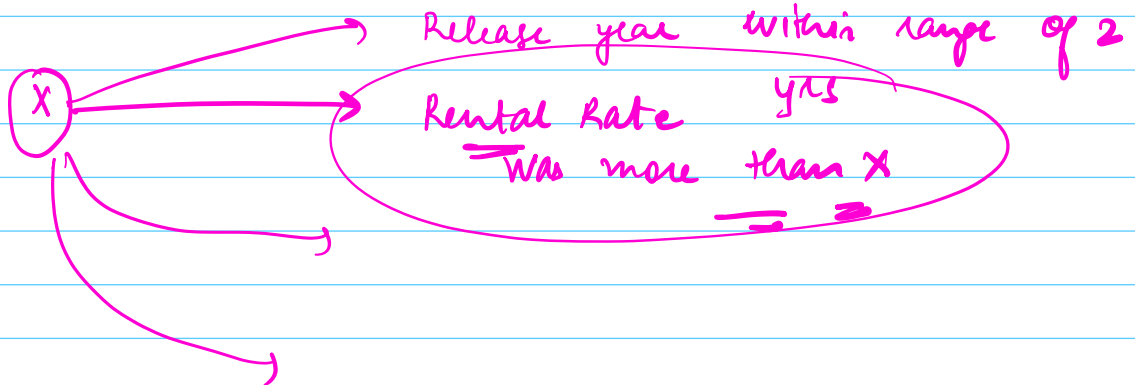 Release year within range of 2
yrs
X
Rental Rate
was more than X